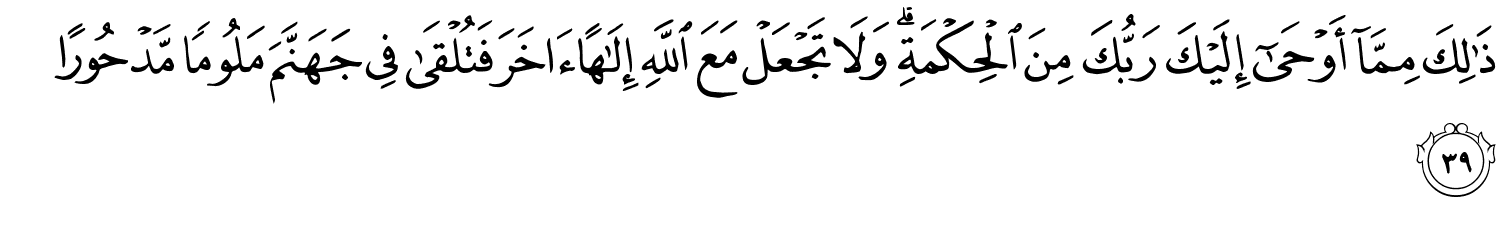 ذَٰلِكَ مِمَّآ أَوْحَىٰٓ إِلَيْكَ رَبُّكَ مِنَ ٱلْحِكْمَةِ ۗ وَلَا تَجْعَلْ مَعَ ٱللَّهِ إِلَٰهًا ءَاخَرَ فَتُلْقَىٰ فِى جَهَنَّمَ مَلُومًا مَّدْحُورًا
٣٩